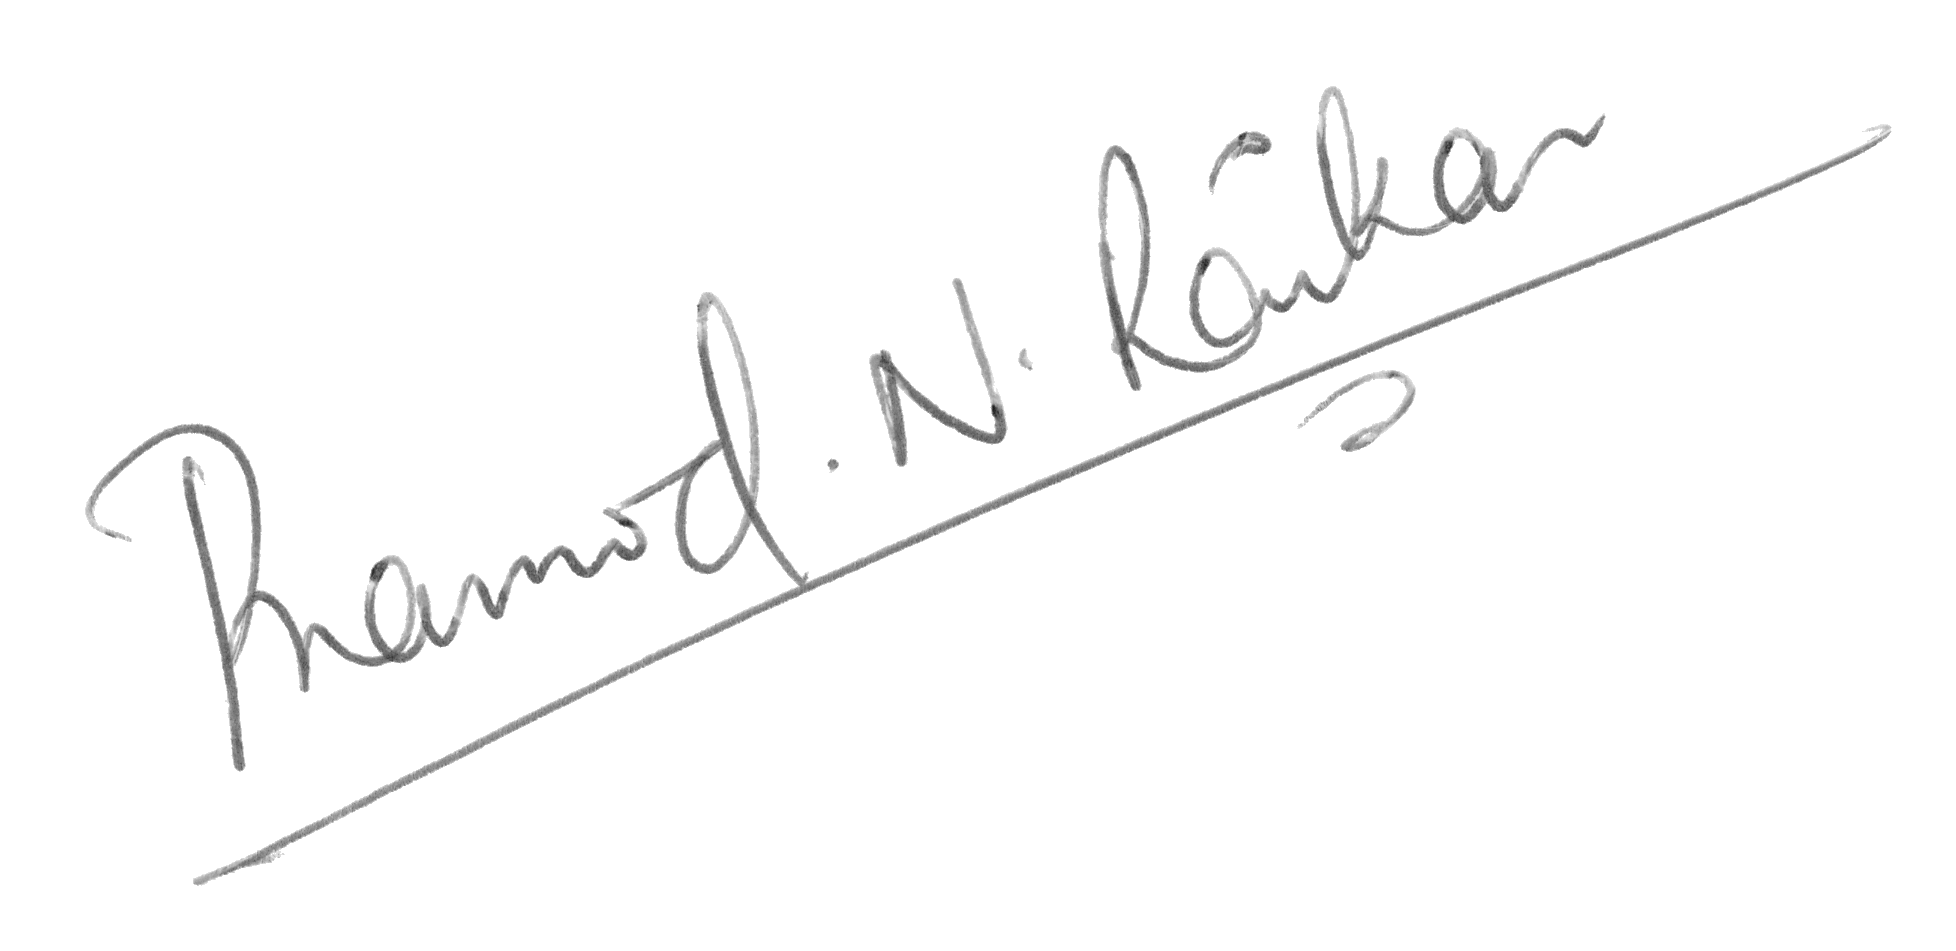 Pramod. N. Raikar